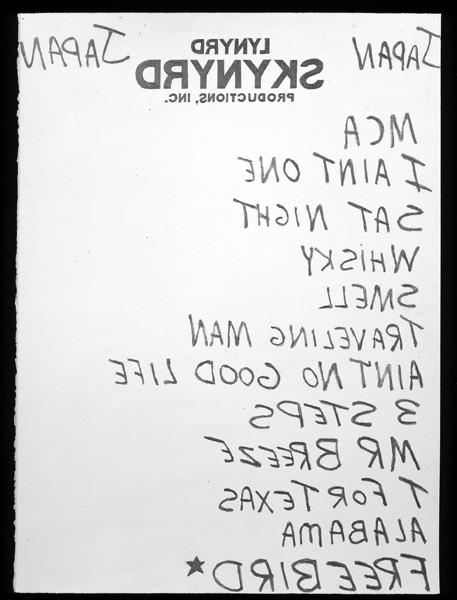 JAPAN JAPAN
LYNYRD
SKYNYRD
PRODUCTIONS, INC.
MCA
I AINT ONE
SAT NIGHT
WHISKY
SMELL
TRAVELING MAN
AIN'T NO GOOD LIFE
3 STEPS
MR BREEZE
T FOR TEXAS
ALABAMA
FREEBIRD ★